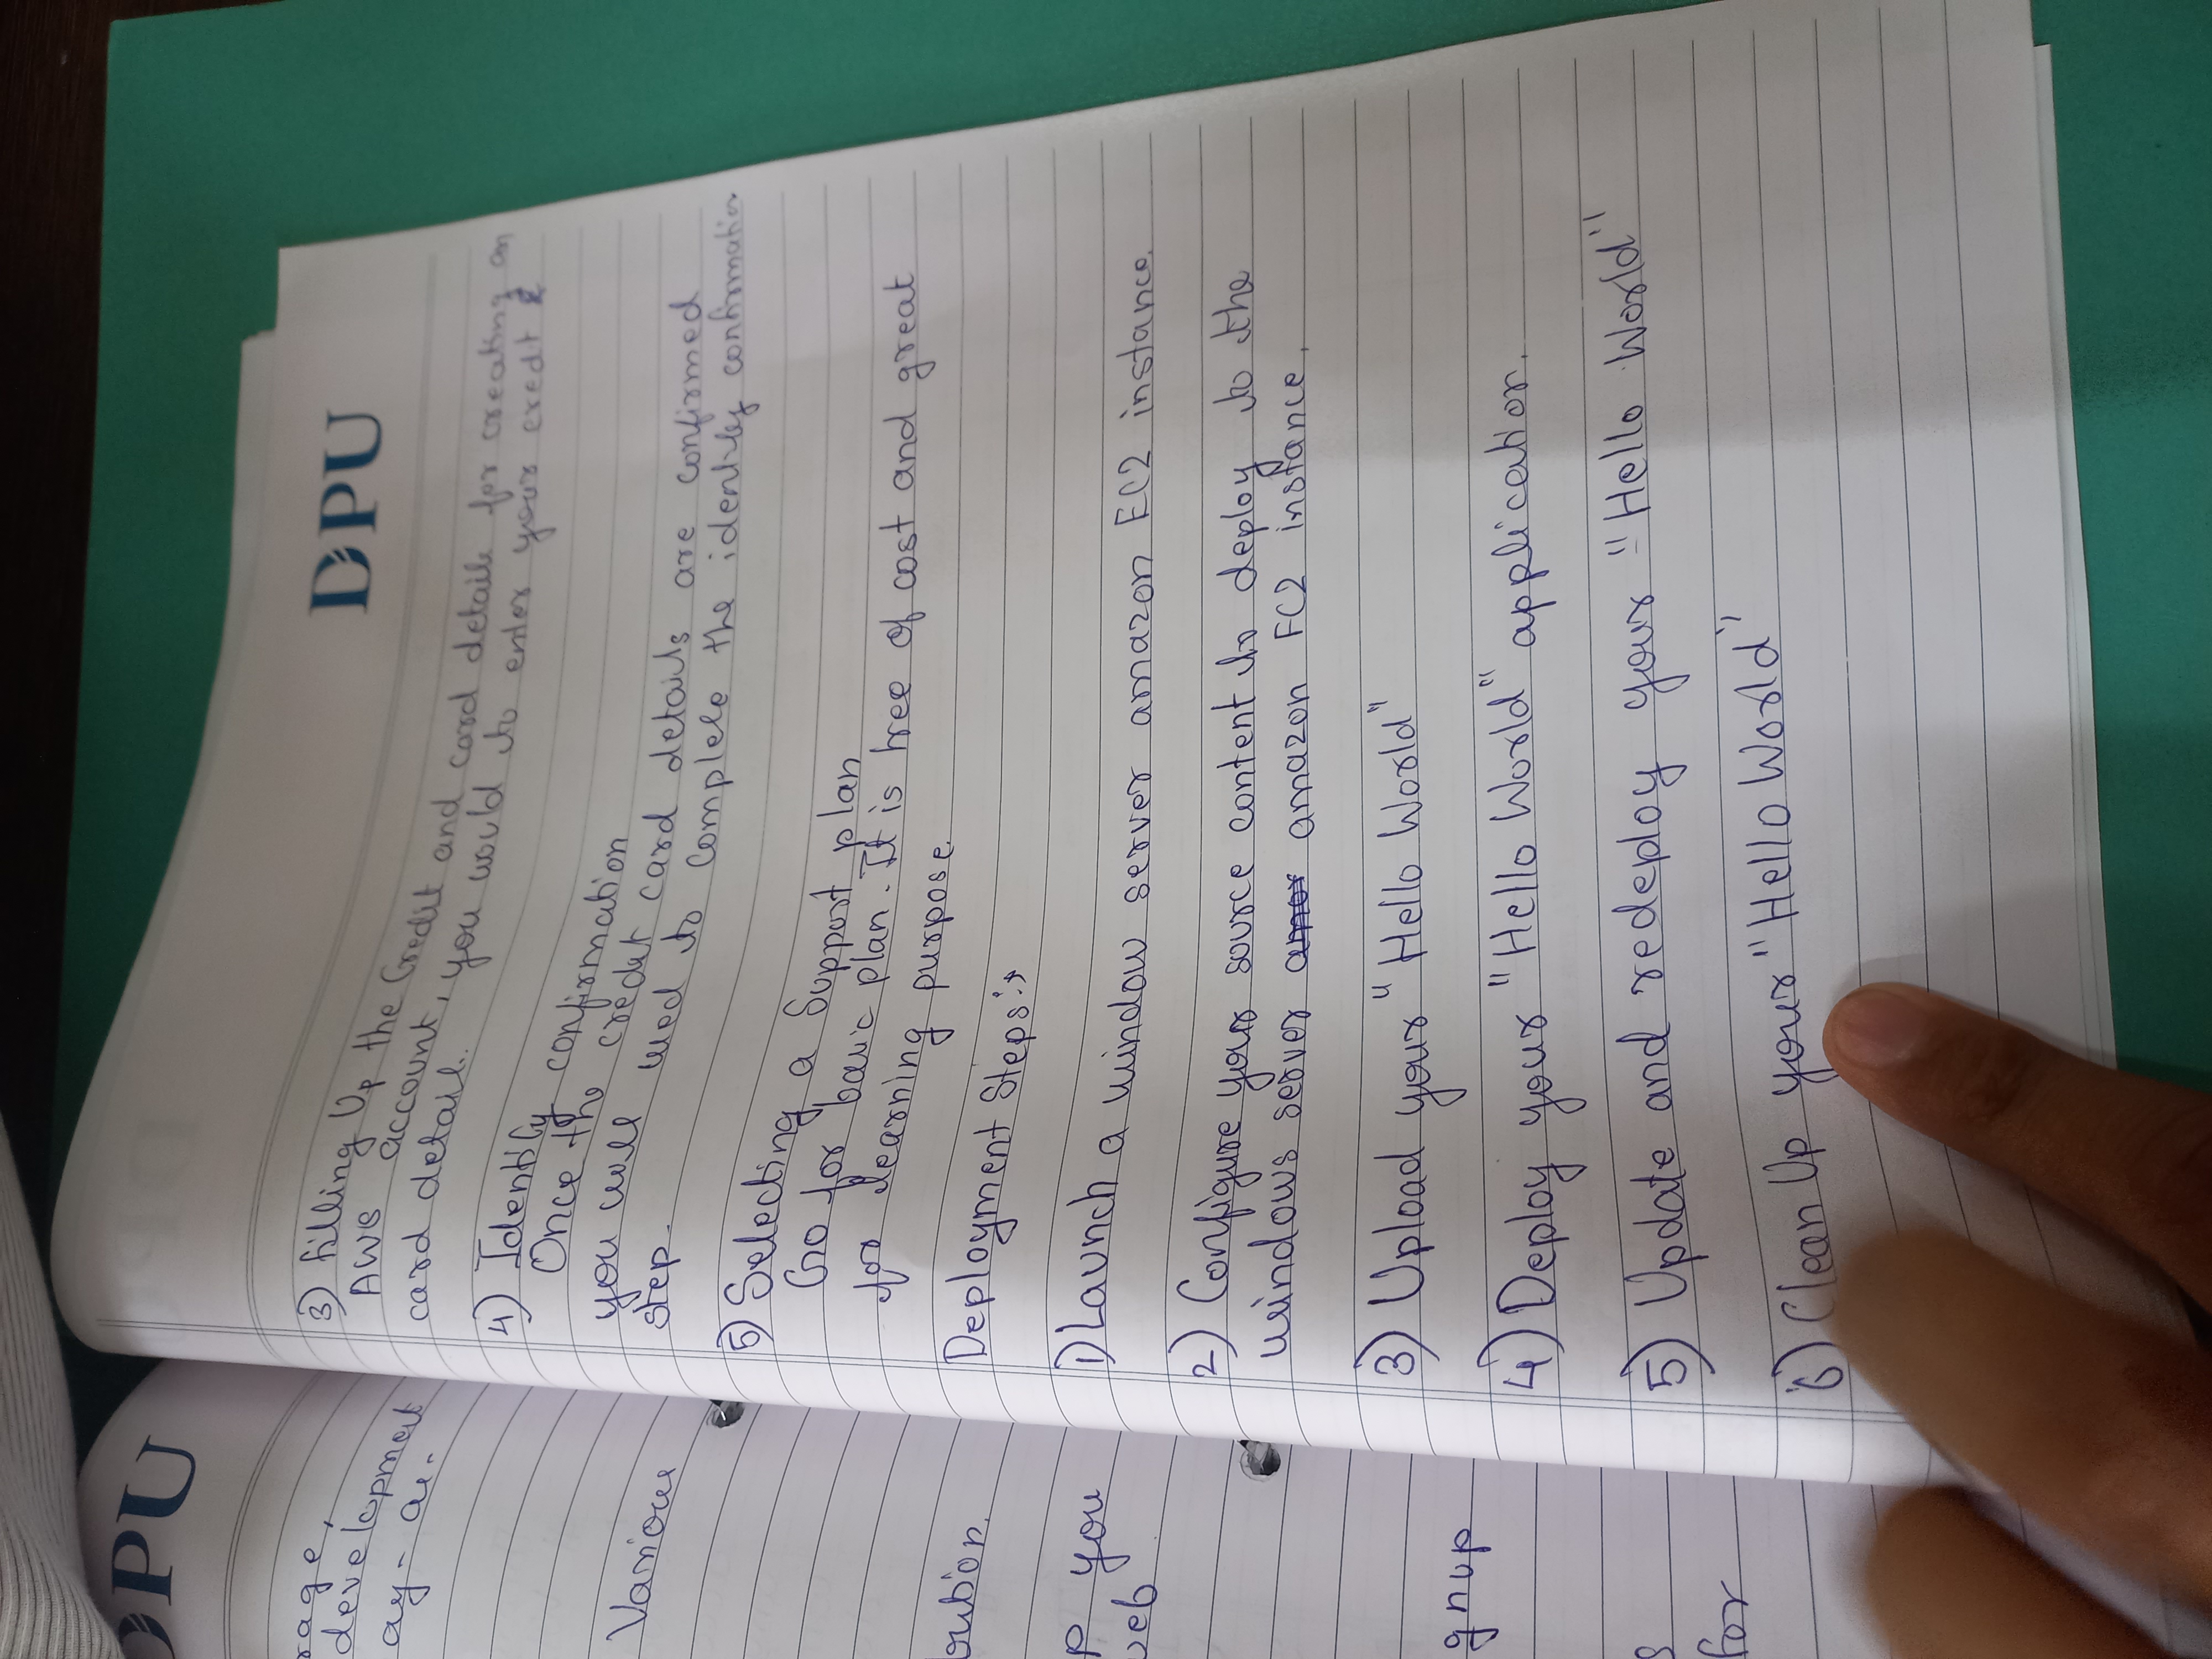 DPU
rage,
development
ay-
Various
bution.
p you
web
gnup
s
for
DPU
3) filling Up the Credit and card details for creating an
AWS account, you would to enter your credit &
card detail.
4) Identity confirmation
Once the credit card details are confirmed
you will need to complete the identity confirmation
step.
5) Selecting a Support plan
Go for basic plan. It is free of cost and great
for learning purpose.
Deployment Steps:→
1) Launch a window server amazon EC2 instance.
2) Configure your source content to deploy to the
windows server amazon EC2 instance.
3) Upload your "Hello World"
4) Deploy your "Hello World" application.
5) Update and redeploy your "Hello World"
6) Clean Up your "Hello World"